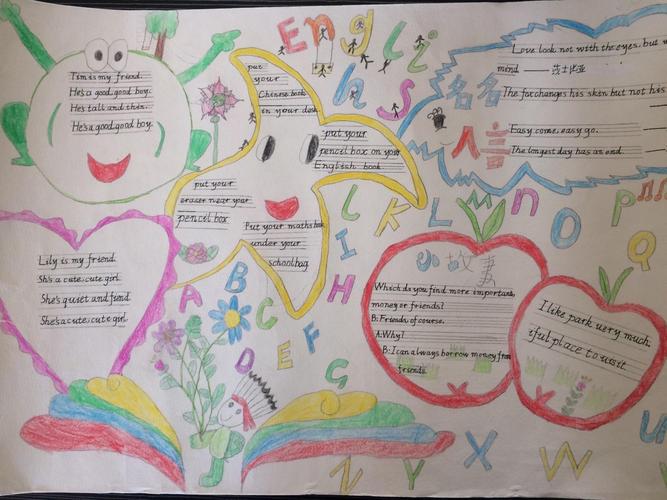 Englis
h
Tim is my friend.
He's a good, good boy.
He's tall and thin.
He's a good, good boy.
put
your
Chinese book
in your desk
put your
pencil box on your
English book
put your
eraser near your
pencil box
Put your maths book
under your
schoolbag
Love look not with the eyes, but w
mind — 莎士比亚
The fox changes his skin but not his
Easy come, easy go.
The longest day has an end.
名名
人言
Lily is my friend
Sh's a cute, cute girl.
She's quiet and
She's a cute, cute girl.
小故事
Which do you find more important,
money or friends?
B: Friends of course.
A: Why?
B: I can always borrow money from
friends.
I like park very much.
iful place to visit
A B C D E F G
H I
L K L M n O P Q
U W X Y N